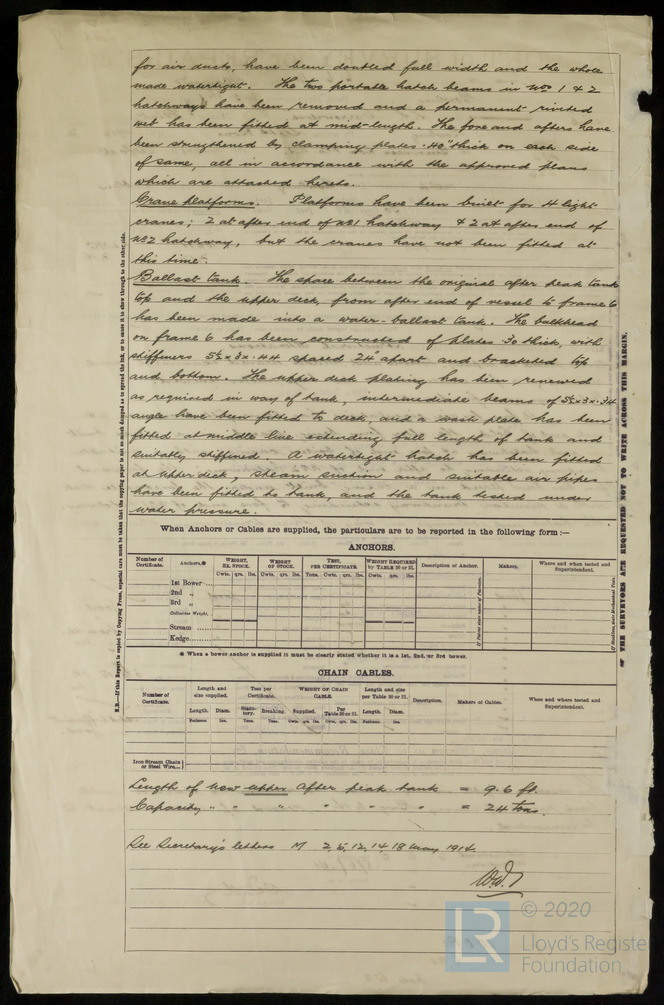 for air ducts, have been doubled full width and the whole
made watertight. The two portable hatch beams in Nos 1 & 2
hatchways have been removed and a permanent riveted
web has been fitted at mid-length. The fore and afters have
been strengthened by clamping plates .40" thick on each side
of same, all in accordance with the approved plans
which are attached hereto.
Crane platforms. Platforms have been built for 4 light
cranes; 2 at after end of No1 hatchway & 2 at after end of
No2 hatchway, but the cranes have not been fitted at
this time.
Ballast tank. The space between the original after peak tank
top and the upper deck, from after end of vessel to frame 6
has been made into a water-ballast tank. The bulkhead
on frame 6 has been constructed of plates .30 thick, with
stiffeners 5½ x 3 x .44 spaced 24" apart and bracketed top
and bottom. The upper deck plating has been renewed
as required in way of tank, intermediate beams of 5½ x 3 x .34
angle have been fitted to deck, and a wash plate has been
fitted at middle line extending full length of tank and
suitably stiffened. A watertight hatch has been fitted
at upper deck, steam suction and suitable air pipes
have been fitted to tank, and the tank tested under
water pressure.
When Anchors or Cables are supplied, the particulars are to be reported in the following form:—
ANCHORS.
Number of Certificate. Anchors.* WEIGHT, EX. STOCK. WEIGHT OF STOCK. TEST, PER CERTIFICATE. WEIGHT REQUIRED by TABLE 30 or 31. Description of Anchor. Makers. Where and when tested and Superintendent.
Cwts. qrs. lbs. Cwts. qrs. lbs. Tons. Cwts. qrs. lbs. Cwts. qrs. lbs.
1st Bower ...
2nd „
3rd „
Collective Weight.
Stream ......
Kedge ......
* When a bower Anchor is supplied it must be clearly stated whether it is a 1st, 2nd, or 3rd bower.
CHAIN CABLES.
Number of Certificate. Length and size supplied. Test per Certificate. WEIGHT OF CHAIN CABLE. Length and size per Table 30 or 31. Description. Makers of Cables. Where and when tested and Superintendent.
Length. Diam. Statutory. Breaking. Supplied. Per Table 30 or 31. Length. Diam.
Fathoms. Ins. Tons. Tons. Cwts. qrs. lbs. Cwts. qrs. lbs. Fathoms. Ins.
Iron Stream Chain or Steel Wire...
Length of New upper After peak tank = 9.6 ft.
Capacity " " " " " " = 24 tons.
See Secretary's letters M 2, 5, 12, 14, 18 May 1914.
THE SURVEYORS ARE REQUESTED NOT TO WRITE ACROSS THIS MARGIN.
N.B.—If this Report is copied by Copying Press, especial care must be taken that the copying paper is not so much damped as to spread the ink, or to cause it to show through to the other side.
LR
© 2020
Lloyd's Registe
Foundation